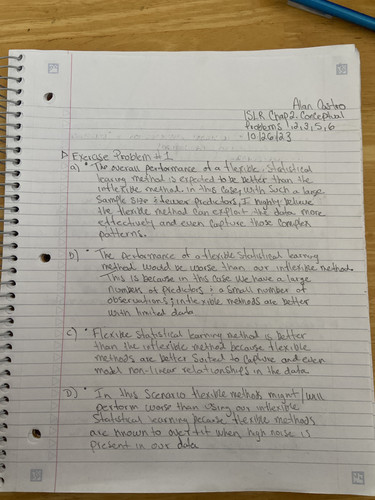 Alan Castro
ISLR Chap 2. Conceptual
Problems 1,2,3,5,6
10/26/23
Exercise Problem #1
a) • The overall performance of a flexible statistical
learing method is expected to be better than the
inflexible method. in this case, with such a large
Sample size & fewer Predictors, I highly believe
the flexible method can exploit the data more
effectively and even capture those complex
patterns.
b) • The performance of a flexible statistical learning
method would be worse than our inflexible method.
This is because in this case we have a large
number of Predictors & a small number of
observations; inflexible methods are better
with limited data
c) • Flexible statistical learning method is better
than the inflexible method because flexible
methods are better suited to capture and even
model non-linear relationships in the data
D) • In this Scenario flexible methods might/will
perform worse than using our inflexible
Statistical learning because flexible methods
are known to overfit when high noise is
present in our data